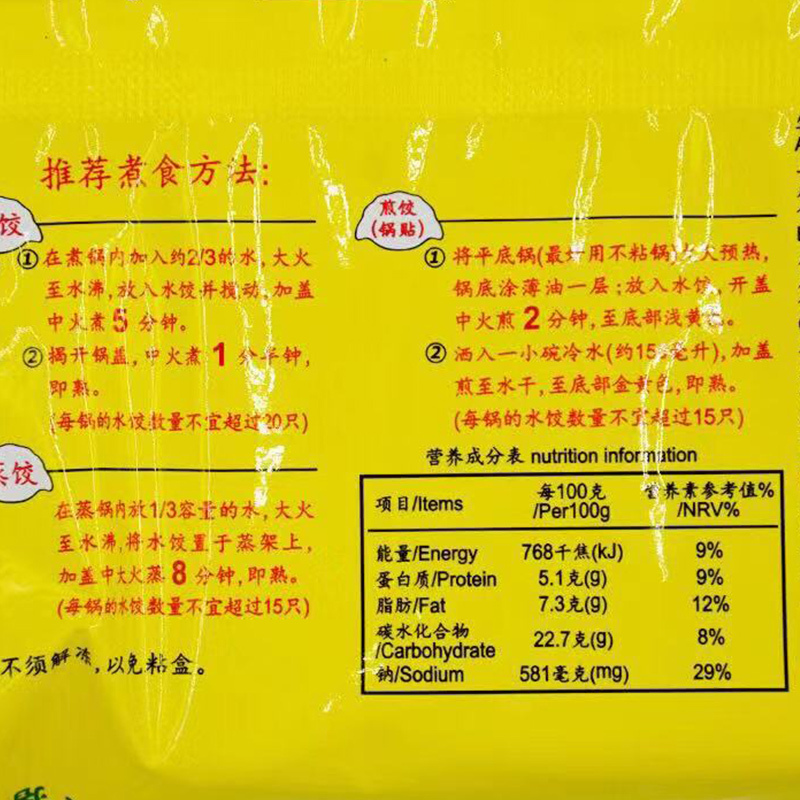 推荐煮食方法:
饺
①在煮锅内加入约2/3的水,大火
至水沸,放入水饺并搅动,加盖
中火煮5分钟。
②揭开锅盖,中火煮1分半钟,
即熟。
(每锅的水饺数量不宜超过20只)
蒸饺
在蒸锅内放1/3容量的水,大火
至水沸,将水饺置于蒸架上,
加盖中大火蒸8分钟,即熟。
(每锅的水饺数量不宜超过15只)
不须解冻,以免粘盒。
煎饺
(锅贴)
①将平底锅(最好用不粘锅)大火预热,
锅底涂薄油一层;放入水饺,开盖
中火煎2分钟,至底部浅黄色。
②洒入一小碗冷水(约15毫升),加盖
煎至水干,至底部金黄色,即熟。
(每锅的水饺数量不宜超过15只)
营养成分表 nutrition information
项目/Items 每100克/Per100g 营养素参考值%/NRV%
能量/Energy 768千焦(kJ) 9%
蛋白质/Protein 5.1克(g) 9%
脂肪/Fat 7.3克(g) 12%
碳水化合物/Carbohydrate 22.7克(g) 8%
钠/Sodium 581毫克(mg) 29%